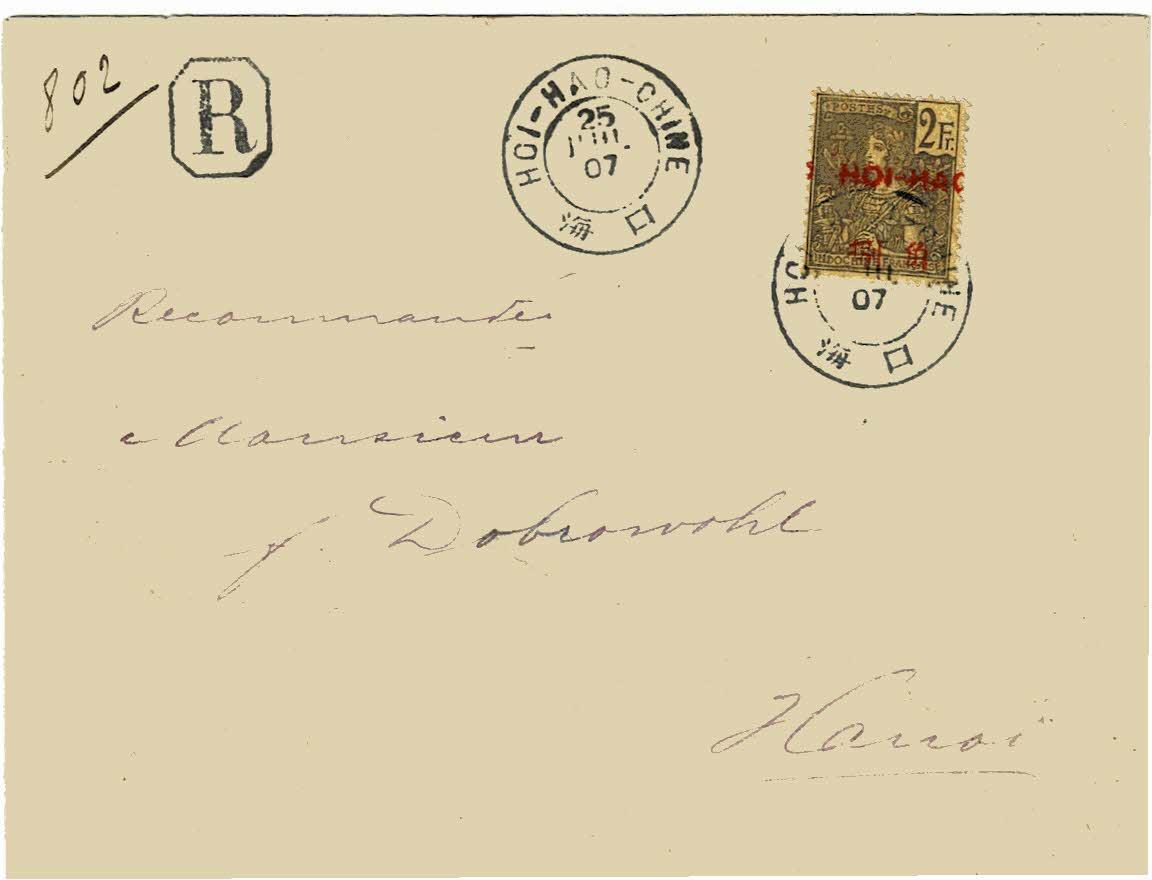 802
R
HOI-HAO-CHINE
25
JUIL.
07
海口
POSTES
2 Fr.
HOI-HAO
INDOCHINE FRANÇAISE
07
海口
Recommandée
a Monsieur
f. Dobrowohl
Hanoï